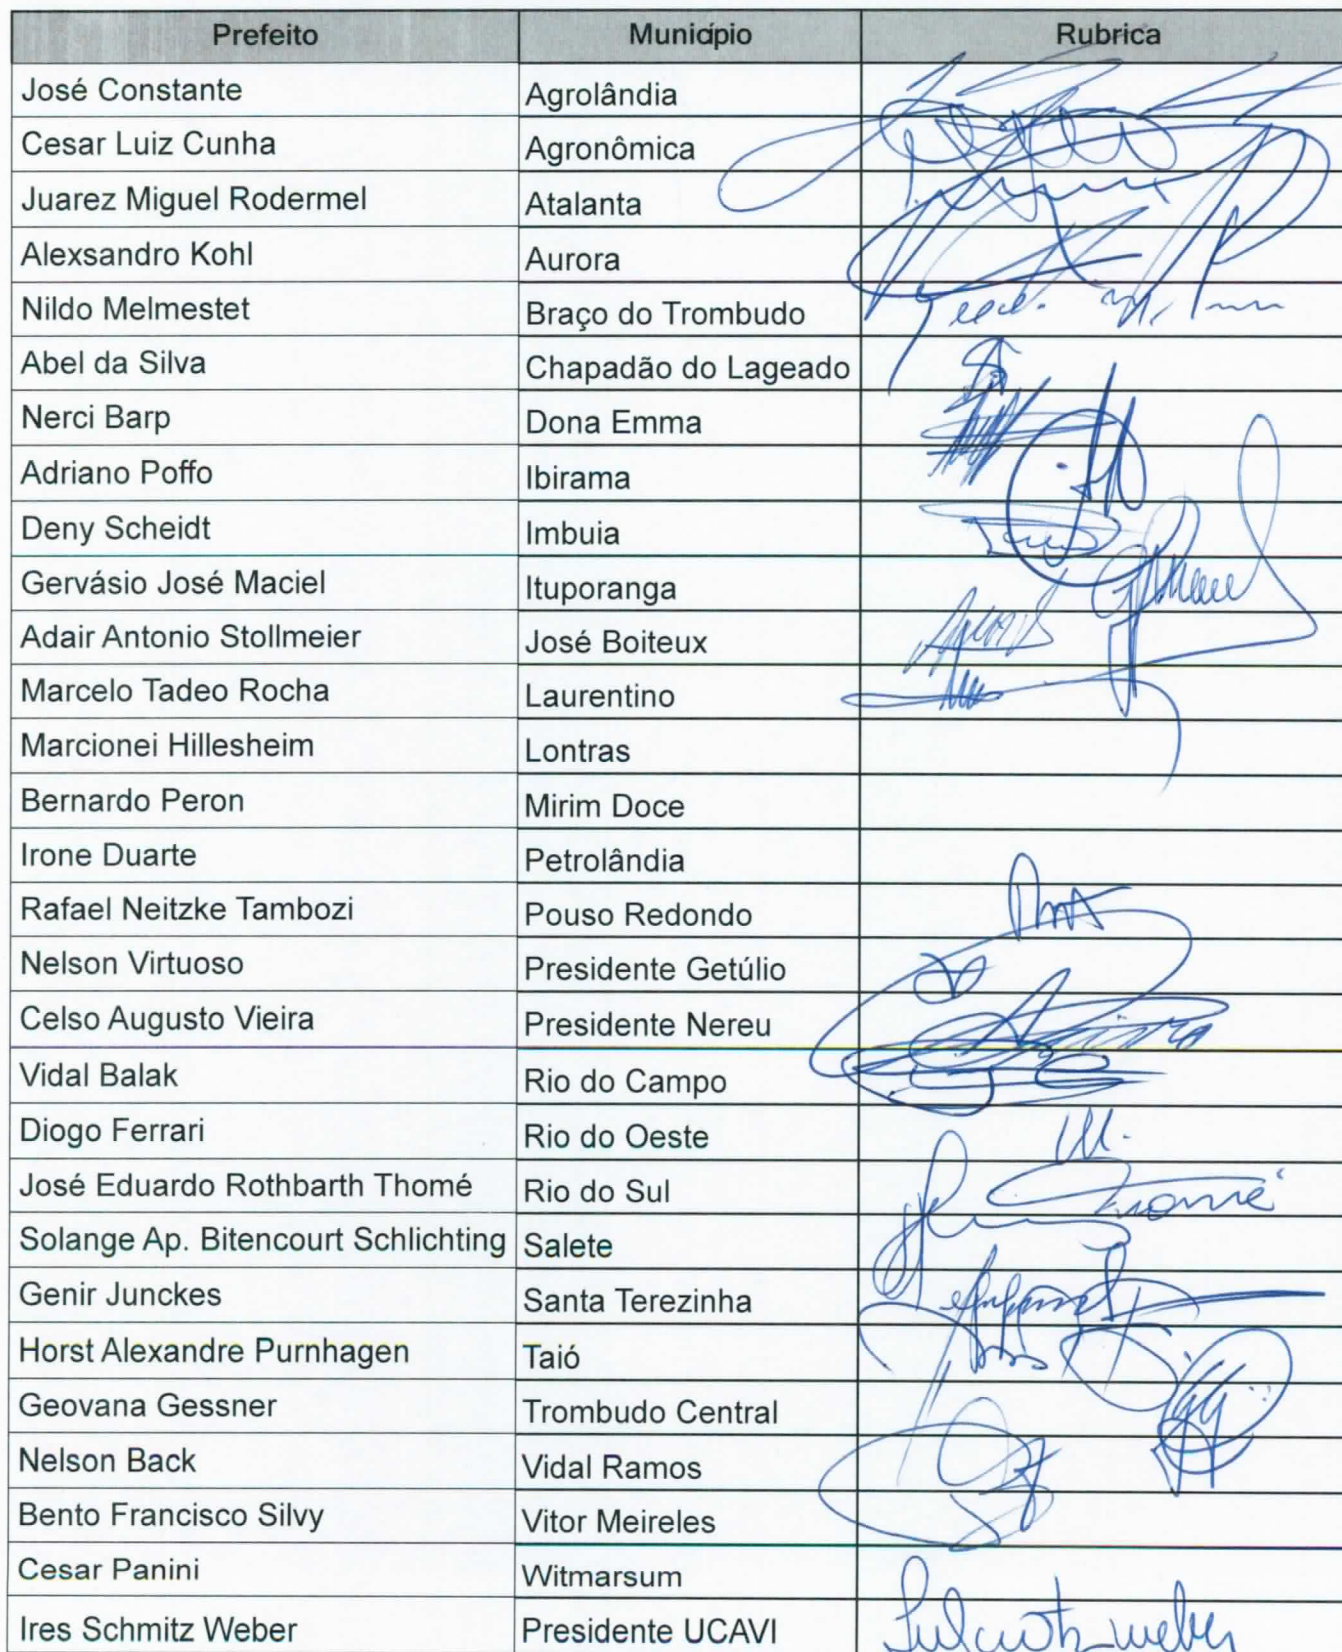 Prefeito Município Rubrica
José Constante Agrolândia
Cesar Luiz Cunha Agronômica
Juarez Miguel Rodermel Atalanta
Alexsandro Kohl Aurora
Nildo Melmestet Braço do Trombudo
Abel da Silva Chapadão do Lageado
Nerci Barp Dona Emma
Adriano Poffo Ibirama
Deny Scheidt Imbuia
Gervásio José Maciel Ituporanga
Adair Antonio Stollmeier José Boiteux
Marcelo Tadeo Rocha Laurentino
Marcionei Hillesheim Lontras
Bernardo Peron Mirim Doce
Irone Duarte Petrolândia
Rafael Neitzke Tambozi Pouso Redondo
Nelson Virtuoso Presidente Getúlio
Celso Augusto Vieira Presidente Nereu
Vidal Balak Rio do Campo
Diogo Ferrari Rio do Oeste
José Eduardo Rothbarth Thomé Rio do Sul
Solange Ap. Bitencourt Schlichting Salete
Genir Junckes Santa Terezinha
Horst Alexandre Purnhagen Taió
Geovana Gessner Trombudo Central
Nelson Back Vidal Ramos
Bento Francisco Silvy Vitor Meireles
Cesar Panini Witmarsum
Ires Schmitz Weber Presidente UCAVI